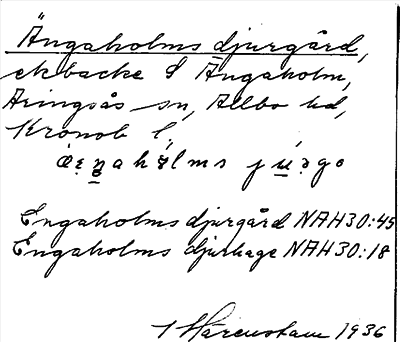 Ängaholms djurgård,
ekbacke i Ängaholm,
Aringsås sn, Allbo hd,
Kronob l,
Engaholms djurgård NAH30:45
Engaholms djurhage NAH30:18
I Härenstam 1936